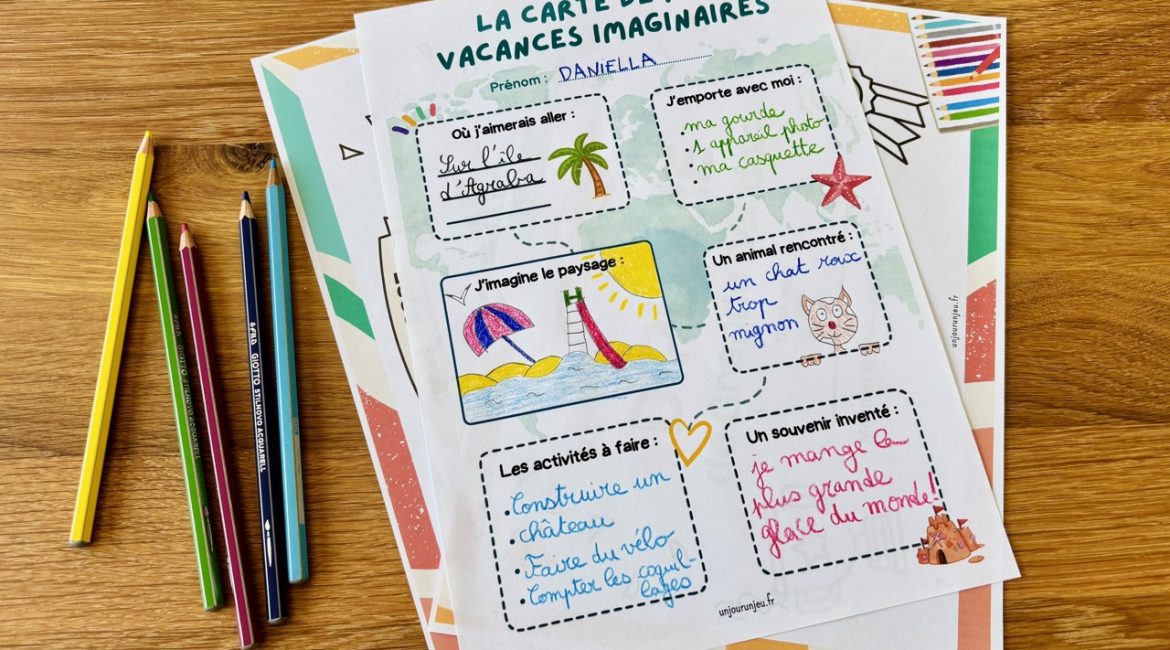 LA CARTE DE
VACANCES IMAGINAIRES
Prénom : DANIELLA
Où j'aimerais aller :
Sur l'île
d'Agraba
J'emporte avec moi :
• ma gourde
• 1 appareil photo
• ma casquette
•
J'imagine le paysage :
Un animal rencontré :
un chat roux
trop
mignon
Les activités à faire :
• Construire un
château
• Faire du vélo
• Compter les coquil-
lages
Un souvenir inventé :
je mange la
plus grande
glace du monde!
unjourunjeu.fr
unjourunjeu.fr
GIOTTO STILNOVO ACQUARELL